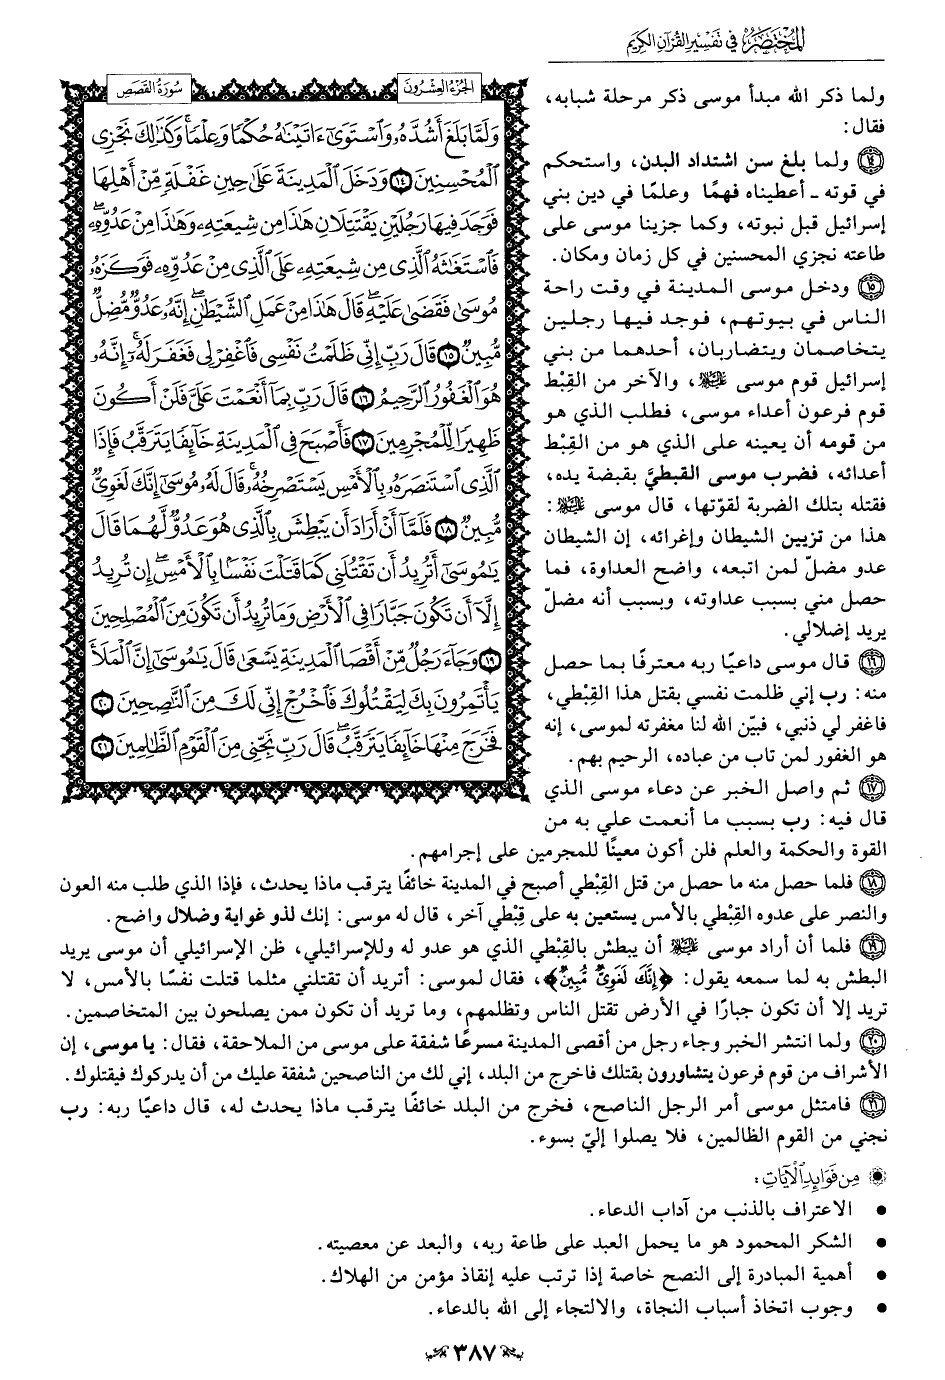 المختصر في تفسير القرآن الكريم
الجزء العشرون
سورة القصص
وَلَمَّا بَلَغَ أَشُدَّهُۥ وَٱسْتَوَىٰٓ ءَاتَيْنَٰهُ حُكْمًا وَعِلْمًا ۚ وَكَذَٰلِكَ نَجْزِى
ٱلْمُحْسِنِينَ ١٤ وَدَخَلَ ٱلْمَدِينَةَ عَلَىٰ حِينِ غَفْلَةٍ مِّنْ أَهْلِهَا
فَوَجَدَ فِيهَا رَجُلَيْنِ يَقْتَتِلَانِ هَٰذَا مِن شِيعَتِهِۦ وَهَٰذَا مِنْ عَدُوِّهِۦ ۖ
فَٱسْتَغَٰثَهُ ٱلَّذِى مِن شِيعَتِهِۦ عَلَى ٱلَّذِى مِنْ عَدُوِّهِۦ فَوَكَزَهُۥ
مُوسَىٰ فَقَضَىٰ عَلَيْهِ ۖ قَالَ هَٰذَا مِنْ عَمَلِ ٱلشَّيْطَٰنِ ۖ إِنَّهُۥ عَدُوٌّ مُّضِلٌّ
مُّبِينٌ ١٥ قَالَ رَبِّ إِنِّى ظَلَمْتُ نَفْسِى فَٱغْفِرْ لِى فَغَفَرَ لَهُۥٓ ۚ إِنَّهُۥ
هُوَ ٱلْغَفُورُ ٱلرَّحِيمُ ١٦ قَالَ رَبِّ بِمَآ أَنْعَمْتَ عَلَىَّ فَلَنْ أَكُونَ
ظَهِيرًا لِّلْمُجْرِمِينَ ١٧ فَأَصْبَحَ فِى ٱلْمَدِينَةِ خَآئِفًا يَتَرَقَّبُ فَإِذَا
ٱلَّذِى ٱسْتَنصَرَهُۥ بِٱلْأَمْسِ يَسْتَصْرِخُهُۥ ۚ قَالَ لَهُۥ مُوسَىٰٓ إِنَّكَ لَغَوِىٌّ
مُّبِينٌ ١٨ فَلَمَّآ أَنْ أَرَادَ أَن يَبْطِشَ بِٱلَّذِى هُوَ عَدُوٌّ لَّهُمَا قَالَ
يَٰمُوسَىٰٓ أَتُرِيدُ أَن تَقْتُلَنِى كَمَا قَتَلْتَ نَفْسًۢا بِٱلْأَمْسِ ۖ إِن تُرِيدُ
إِلَّآ أَن تَكُونَ جَبَّارًا فِى ٱلْأَرْضِ وَمَا تُرِيدُ أَن تَكُونَ مِنَ ٱلْمُصْلِحِينَ
١٩ وَجَآءَ رَجُلٌ مِّنْ أَقْصَا ٱلْمَدِينَةِ يَسْعَىٰ قَالَ يَٰمُوسَىٰٓ إِنَّ ٱلْمَلَأَ
يَأْتَمِرُونَ بِكَ لِيَقْتُلُوكَ فَٱخْرُجْ إِنِّى لَكَ مِنَ ٱلنَّٰصِحِينَ ٢٠
فَخَرَجَ مِنْهَا خَآئِفًا يَتَرَقَّبُ ۖ قَالَ رَبِّ نَجِّنِى مِنَ ٱلْقَوْمِ ٱلظَّٰلِمِينَ ٢١
ولما ذكر الله مبدأ موسى ذكر مرحلة شبابه،
فقال:
١٤ ولما بلغ سن اشتداد البدن، واستحكم
في قوته - أعطيناه فهمًا وعلمًا في دين بني
إسرائيل قبل نبوته، وكما جزينا موسى على
طاعته نجزي المحسنين في كل زمان ومكان.
١٥ ودخل موسى المدينة في وقت راحة
الناس في بيوتهم، فوجد فيها رجلين
يتخاصمان ويتضاربان، أحدهما من بني
إسرائيل قوم موسى ﷺ، والآخر من القِبْط
قوم فرعون أعداء موسى، فطلب الذي هو
من قومه أن يعينه على الذي هو من القِبْط
أعدائه، فضرب موسى القبطيَّ بقبضة يده،
فقتله بتلك الضربة لقوّتها، قال موسى ﷺ:
هذا من تزيين الشيطان وإغرائه، إن الشيطان
عدو مضلّ لمن اتبعه، واضح العداوة، فما
حصل مني بسبب عداوته، وبسبب أنه مضلّ
يريد إضلالي.
١٦ قال موسى داعيًا ربه معترفًا بما حصل
منه: رب إني ظلمت نفسي بقتل هذا القِبْطي،
فاغفر لي ذنبي، فبيّن الله لنا مغفرته لموسى، إنه
هو الغفور لمن تاب من عباده، الرحيم بهم.
١٧ ثم واصل الخبر عن دعاء موسى الذي
قال فيه: رب بسبب ما أنعمت علي به من
القوة والحكمة والعلم فلن أكون معينًا للمجرمين على إجرامهم.
١٨ فلما حصل منه ما حصل من قتل القِبْطي أصبح في المدينة خائفًا يترقب ماذا يحدث، فإذا الذي طلب منه العون
والنصر على عدوه القِبْطي بالأمس يستعين به على قِبْطي آخر، قال له موسى: إنك لذو غواية وضلال واضح.
١٩ فلما أن أراد موسى ﷺ أن يبطش بالقِبْطي الذي هو عدو له وللإسرائيلي، ظن الإسرائيلي أن موسى يريد
البطش به لما سمعه يقول: ﴿إِنَّكَ لَغَوِىٌّ مُّبِينٌ﴾، فقال لموسى: أتريد أن تقتلني مثلما قتلت نفسًا بالأمس، لا
تريد إلا أن تكون جبارًا في الأرض تقتل الناس وتظلمهم، وما تريد أن تكون ممن يصلحون بين المتخاصمين.
٢٠ ولما انتشر الخبر وجاء رجل من أقصى المدينة مسرعًا شفقة على موسى من الملاحقة، فقال: يا موسى، إن
الأشراف من قوم فرعون يتشاورون بقتلك فاخرج من البلد، إني لك من الناصحين شفقة عليك من أن يدركوك فيقتلوك.
٢١ فامتثل موسى أمر الرجل الناصح، فخرج من البلد خائفًا يترقب ماذا يحدث له، قال داعيًا ربه: رب
نجني من القوم الظالمين، فلا يصلوا إليّ بسوء.
من فوائد الآيات:
• الاعتراف بالذنب من آداب الدعاء.
• الشكر المحمود هو ما يحمل العبد على طاعة ربه، والبعد عن معصيته.
• أهمية المبادرة إلى النصح خاصة إذا ترتب عليه إنقاذ مؤمن من الهلاك.
• وجوب اتخاذ أسباب النجاة، والالتجاء إلى الله بالدعاء.
٣٨٧